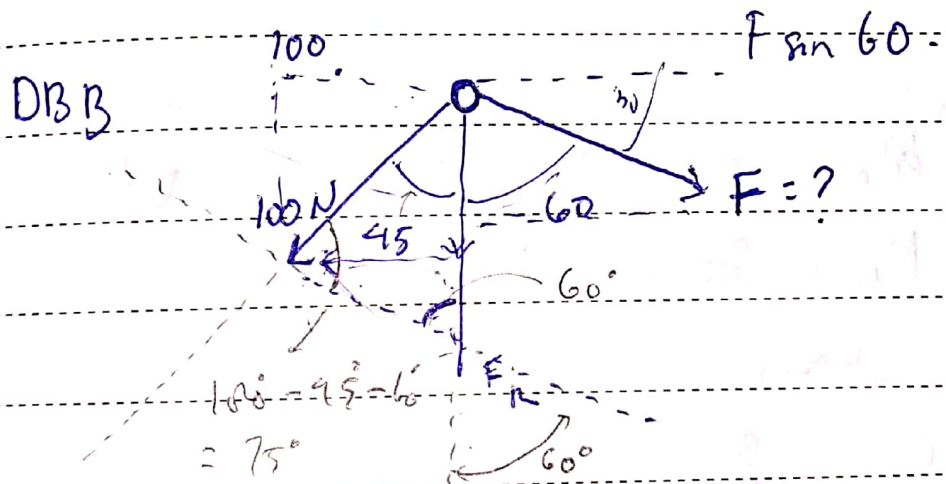 100
F sin 60.
DBB
30
100 N
F = ?
60
45
60°
180° - 45° - 60°
= 75°
F_R
60°